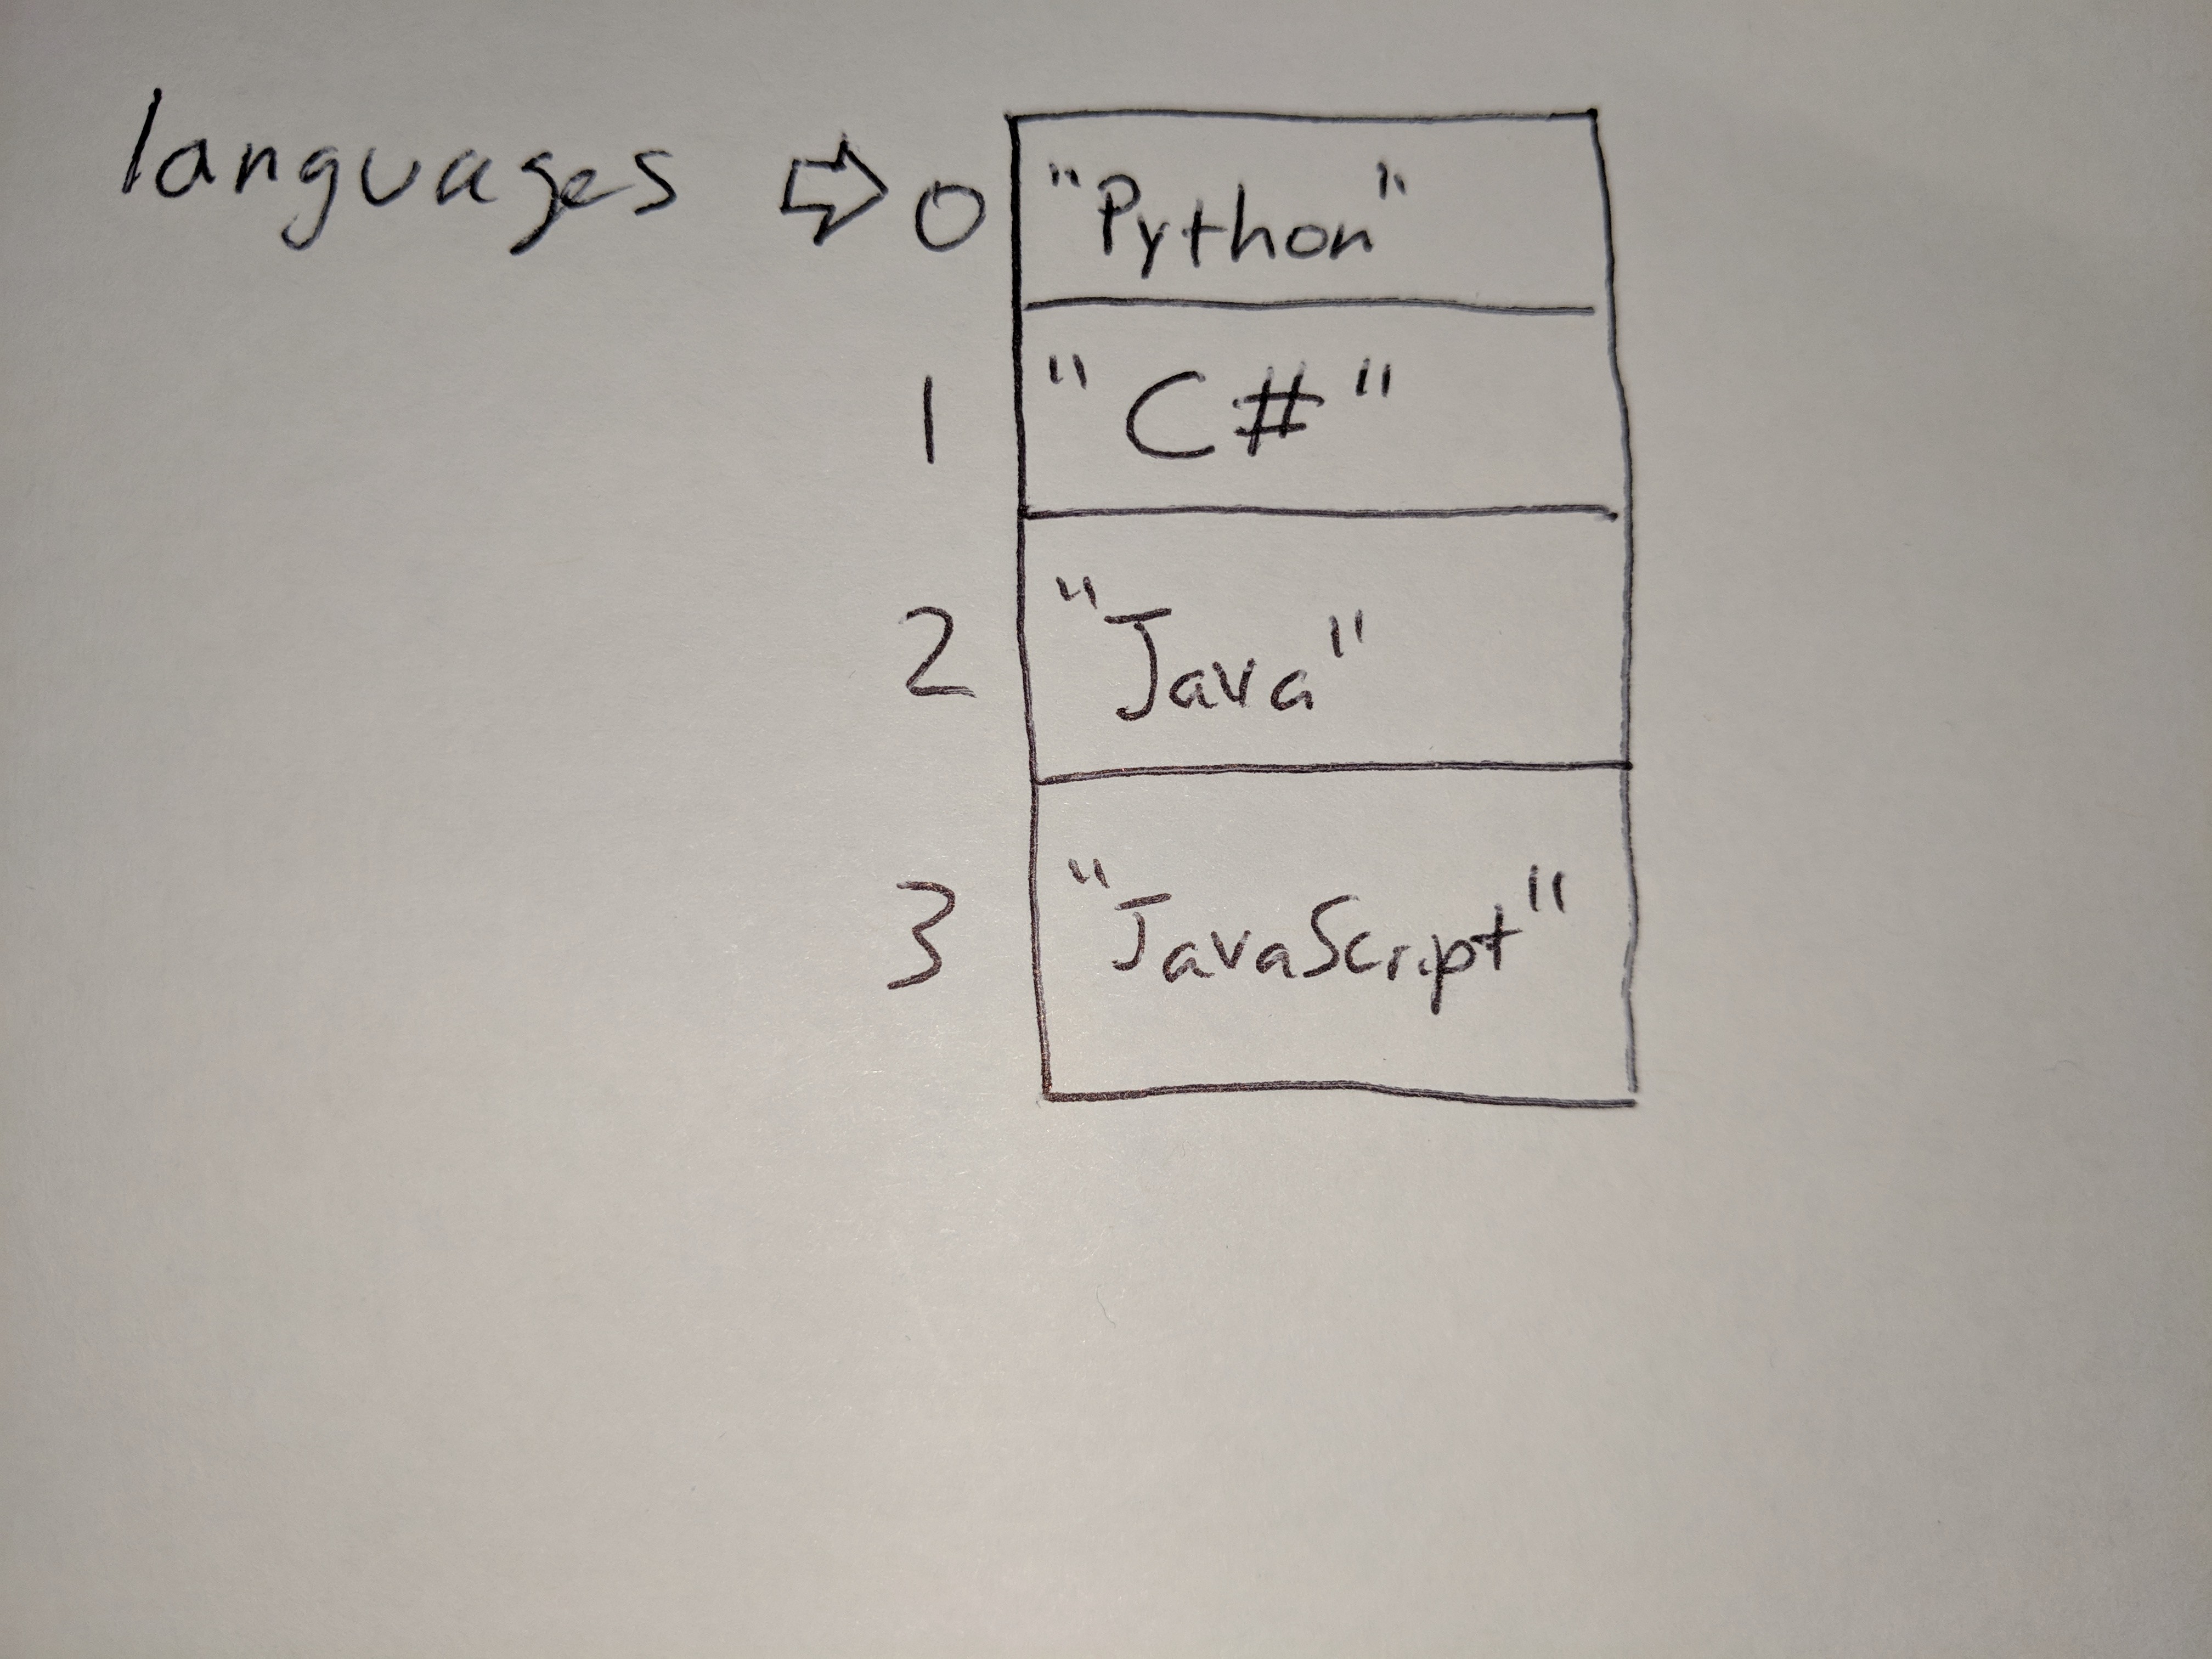 languages ⇨ 0 "Python"
1 "C#"
2 "Java"
3 "JavaScript"